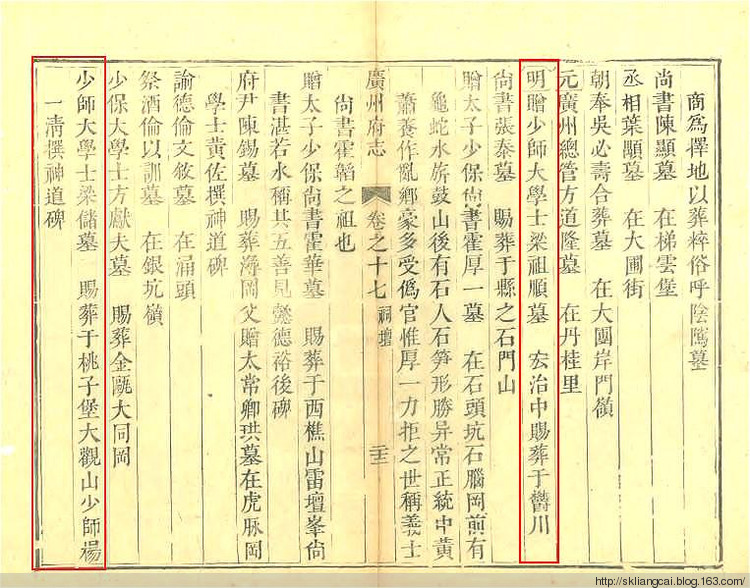 商為擇地以葬粹俗呼陰騭墓
尚書陳顯墓　在梯雲堡
丞相葉顒墓　在大圃街
朝奉吳必壽合葬墓　在大團岸門嶺
元廣州總管方道隆墓　在丹桂里
明贈少師大學士梁祖順墓　宏治中賜葬于欎川
尚書張泰墓　賜葬于縣之石門山
贈太子少保尚書霍厚一墓　在石頭坑石腦岡前有
龜蛇水旂鼓山後有石人石筍形勝异常正統中黃
蕭養作亂鄉豪多受僞官惟厚一力拒之世稱義士
廣州府志　卷之十七　祠壇　二十三
尚書霍韜之祖也
贈太子少保尚書霍華墓　賜葬于西樵山雷壇峯尚
書湛若水稱其五善見懿德裕後碑
府尹陳錫墓　賜葬海岡父贈太常卿珙墓在虎脉岡
學士黃佐撰神道碑
諭德倫文敘墓　在涌頭
祭酒倫以訓墓　在銀坑嶺
少保大學士方獻夫墓　賜葬金甌大同岡
少師大學士梁儲墓　賜葬于桃子堡大觀山少師楊
一淸撰神道碑
http://skliangcai.blog.163.com/